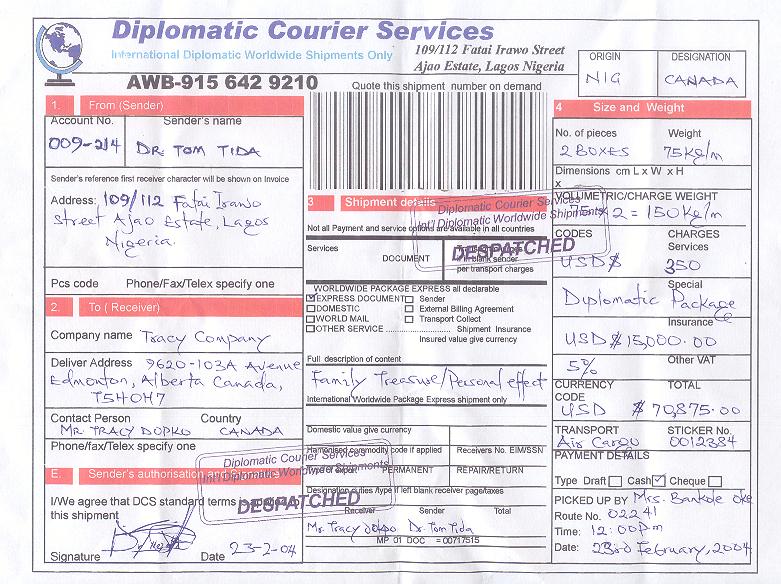 Diplomatic Courier Services
International Diplomatic Worldwide Shipments Only
109/112 Fatai Irawo Street
Ajao Estate, Lagos Nigeria
ORIGIN
NIG
DESIGNATION
CANADA
AWB-915 642 9210
Quote this shipment number on demand
1. From (Sender)
Account No. Sender's name
009-214 DR. TOM TIDA
Sender's reference first receiver character will be shown on Invoice
Address: 109/112 Fatai Irawo
Street Ajao Estate, Lagos
Nigeria.
Pcs code Phone/Fax/Telex specify one
2. To ( Receiver)
Company name Tracy Company
Deliver Address 9620-103A Avenue
Edmonton, Alberta Canada,
T5H0H7
Contact Person Country
MR. TRACY DOPKO CANADA
Phone/fax/Telex specify one
E. Sender's authorisation and
I/We agree that DCS standard terms
this shipment
Signature Date 23-2-04
3 Shipment details
Not all Payment and service options are available in all countries
Services
DOCUMENT
if blank sender
per transport charges
Diplomatic Courier Services
Int'l Diplomatic Worldwide Shipments
DESPATCHED
WORLDWIDE PACKAGE EXPRESS all declarable
EXPRESS DOCUMENT Sender
DOMESTIC External Billing Agreement
WORLD MAIL Transport Collect
OTHER SERVICE .................... Shipment Insurance
Insured value give currency
Full description of content
Family Treasure/Personal effect
International Worldwide Package Express shipment only
Domestic value give currency
Harmonised commodity code if applied Receivers No. EIM/SSN
Type of export PERMANENT REPAIR/RETURN
Designation duties /type if left blank receiver page/taxes
Receiver Sender Total
Mr. Tracy Dopko Dr. Tom Tida
MP 01 DOC = 00717515
Diplomatic Courier Services
Int'l Diplomatic Worldwide Shipments
DESPATCHED
4 Size and Weight
No. of pieces Weight
2 BOXES 75kg/m
Dimensions cm L x W x H
x
VOLUMETRIC/CHARGE WEIGHT
75 x 2 = 150kg/m
CODES CHARGES
Services
USD $ 350
Special
Diplomatic Package
Insurance
USD $ 15,000.00
Other VAT
5%
CURRENCY TOTAL
CODE
USD $ 70,875.00
TRANSPORT STICKER No.
Air Cargo 0012384
PAYMENT DETAILS
Type Draft Cash Cheque
PICKED UP BY Mrs. Bankole Oke
Route No. 02241
Time: 12:00pm
Date: 23rd February, 2004